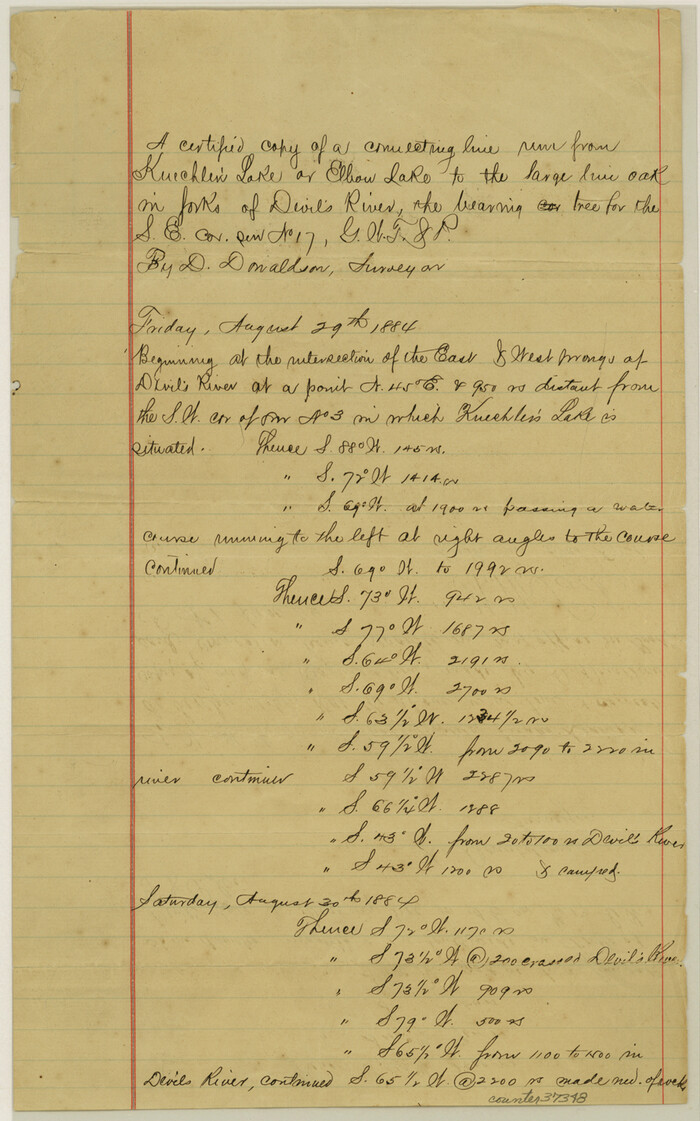 A certified copy of a connecting line run from
Kuechler's Lake or Elbow Lake to the large live oak
in forks of Devil's River, the bearing tree for the
S. E. cor. sur No 17, G. W. T. & P.
By D. Donaldson, Surveyor
Friday, August 29th 1884
Beginning at the intersection of the East & West prongs of
Devil's River at a point N. 45° E. & 950 vs distant from
the S. W. cor of sur No 3 in which Kuechler's Lake is
situated. Thence S. 88° W. 145 vs.
" S. 72° W. 1414 vs
" S. 69° W. at 1900 vs passing a water
course running to the left at right angles to the course
continued S. 69° W. to 1992 vs.
Thence S. 73° W. 942 vs
" S 77° W. 1687 vs
" S. 64° W. 2191 vs.
" S. 69° W. 2700 vs
" S. 63 1/2 W. 1234 1/2 vs
" S. 59 1/2° W. from 2090 to 2220 in
river continued S 59 1/2° W 2287 vs
" S. 66 1/4° W. 1288
" S. 43° W. from 20 to 100 vs Devil's River
" S 43° W 1200 vs & camped.
Saturday, August 30th 1884
Thence S 72° W. 1170 vs
" S 73 1/2° W @ 200 crossed Devil's River
" S 73 1/2° W 909 vs
" S 79° W. 500 vs
" S 65 1/2° W from 1100 to in
Devils River, continued S. 65 1/2 W. @ 2200 vs made of rock
counter 37348